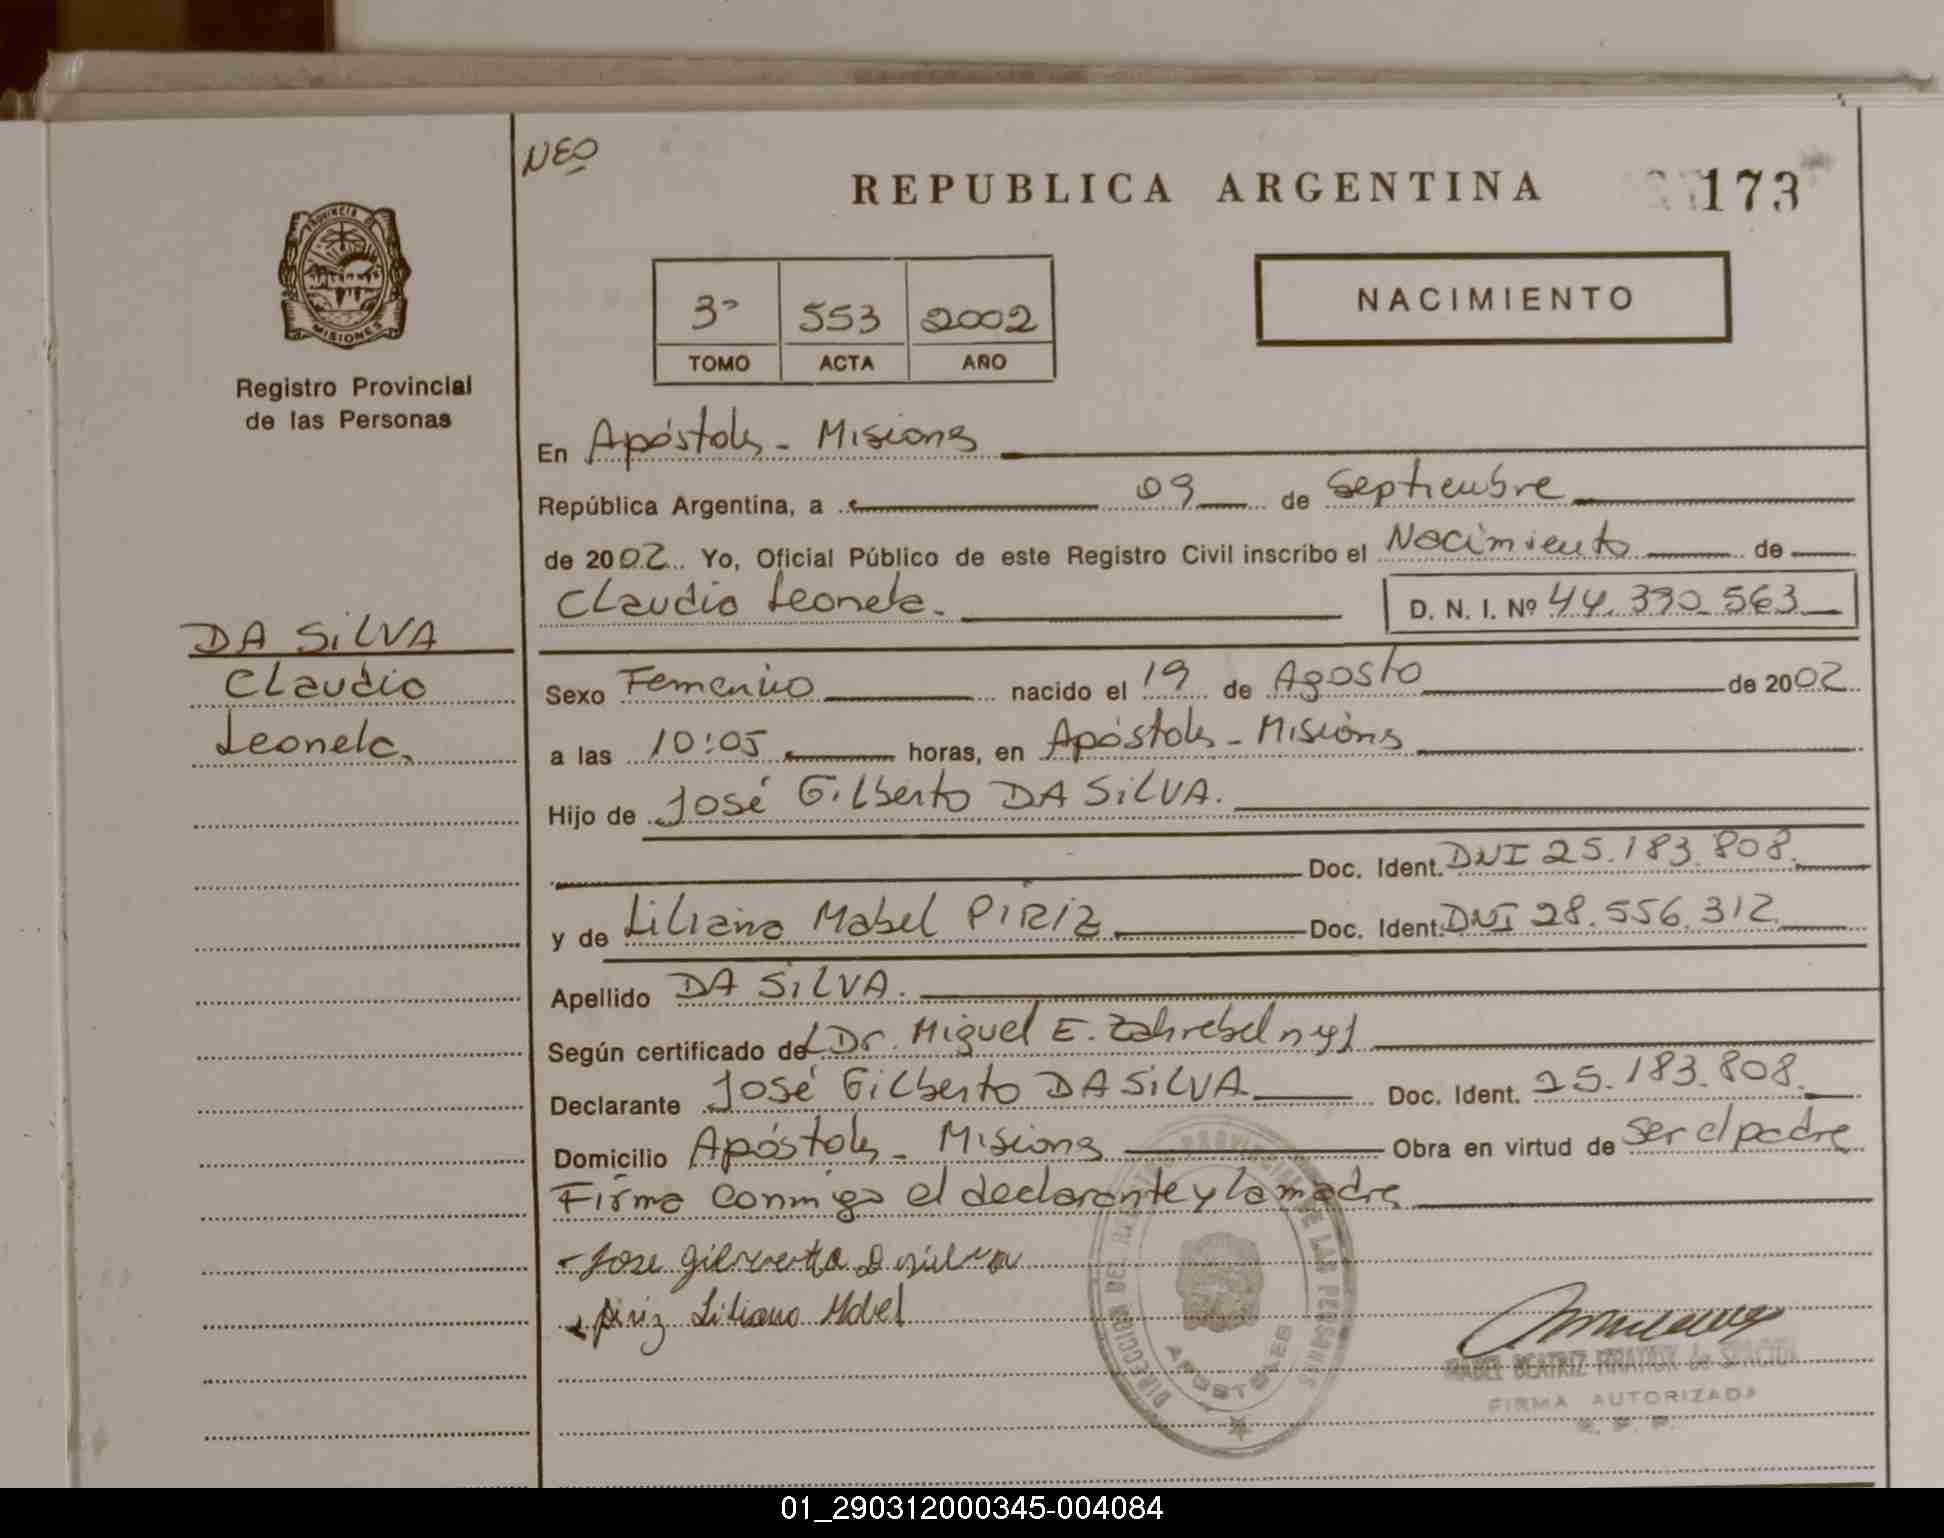 NEO
REPUBLICA ARGENTINA
173
PROVINCIA DE
MISIONES
3º 553 2002
TOMO ACTA AÑO
NACIMIENTO
Registro Provincial
de las Personas
En Apóstoles - Misiones
República Argentina, a 09 de Septiembre
de 2002 Yo, Oficial Público de este Registro Civil inscribo el Nacimiento de
Claudia Leonela.
D. N. I. Nº 44.390.563
DA SILVA
Claudia
Leonela.
Sexo Femenino nacido el 19 de Agosto de 2002
a las 10:05 horas, en Apóstoles - Misiones
Hijo de José Gilberto DA SILVA.
Doc. Ident. DNI 25.183.808.
y de Liliana Mabel PIRIZ Doc. Ident. DNI 28.556.312
Apellido DA SILVA.
Según certificado del Dr. Miguel E. Zahrebelnyj
Declarante José Gilberto DA SILVA Doc. Ident. 25.183.808.
Domicilio Apóstoles - Misiones Obra en virtud de Ser el padre
Firma conmigo el declarante y la madre
- Jose Gilverto D
piriz Liliana Mabel
DIRECCION DEL REGISTRO PROVINCIAL DE LAS PERSONAS
APOSTOLES
MABEL BEATRIZ de
FIRMA AUTORIZADA
R. P. P.
01_290312000345-004084